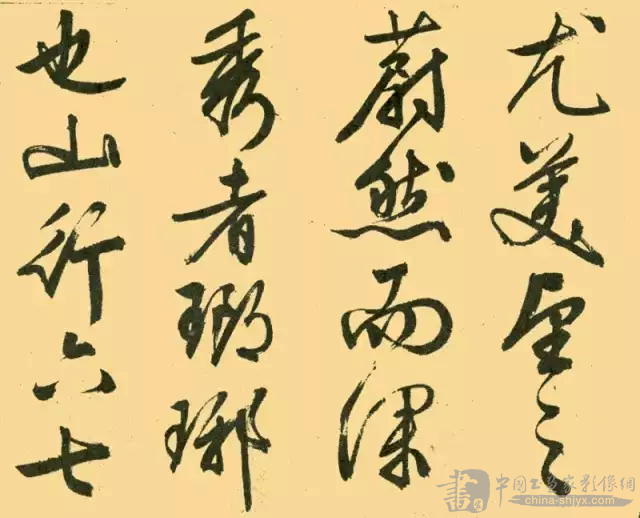 尤美望之
蔚然而深
秀者瑯琊
也山行六七
書
中国书画家影像網
china-shjyx.com